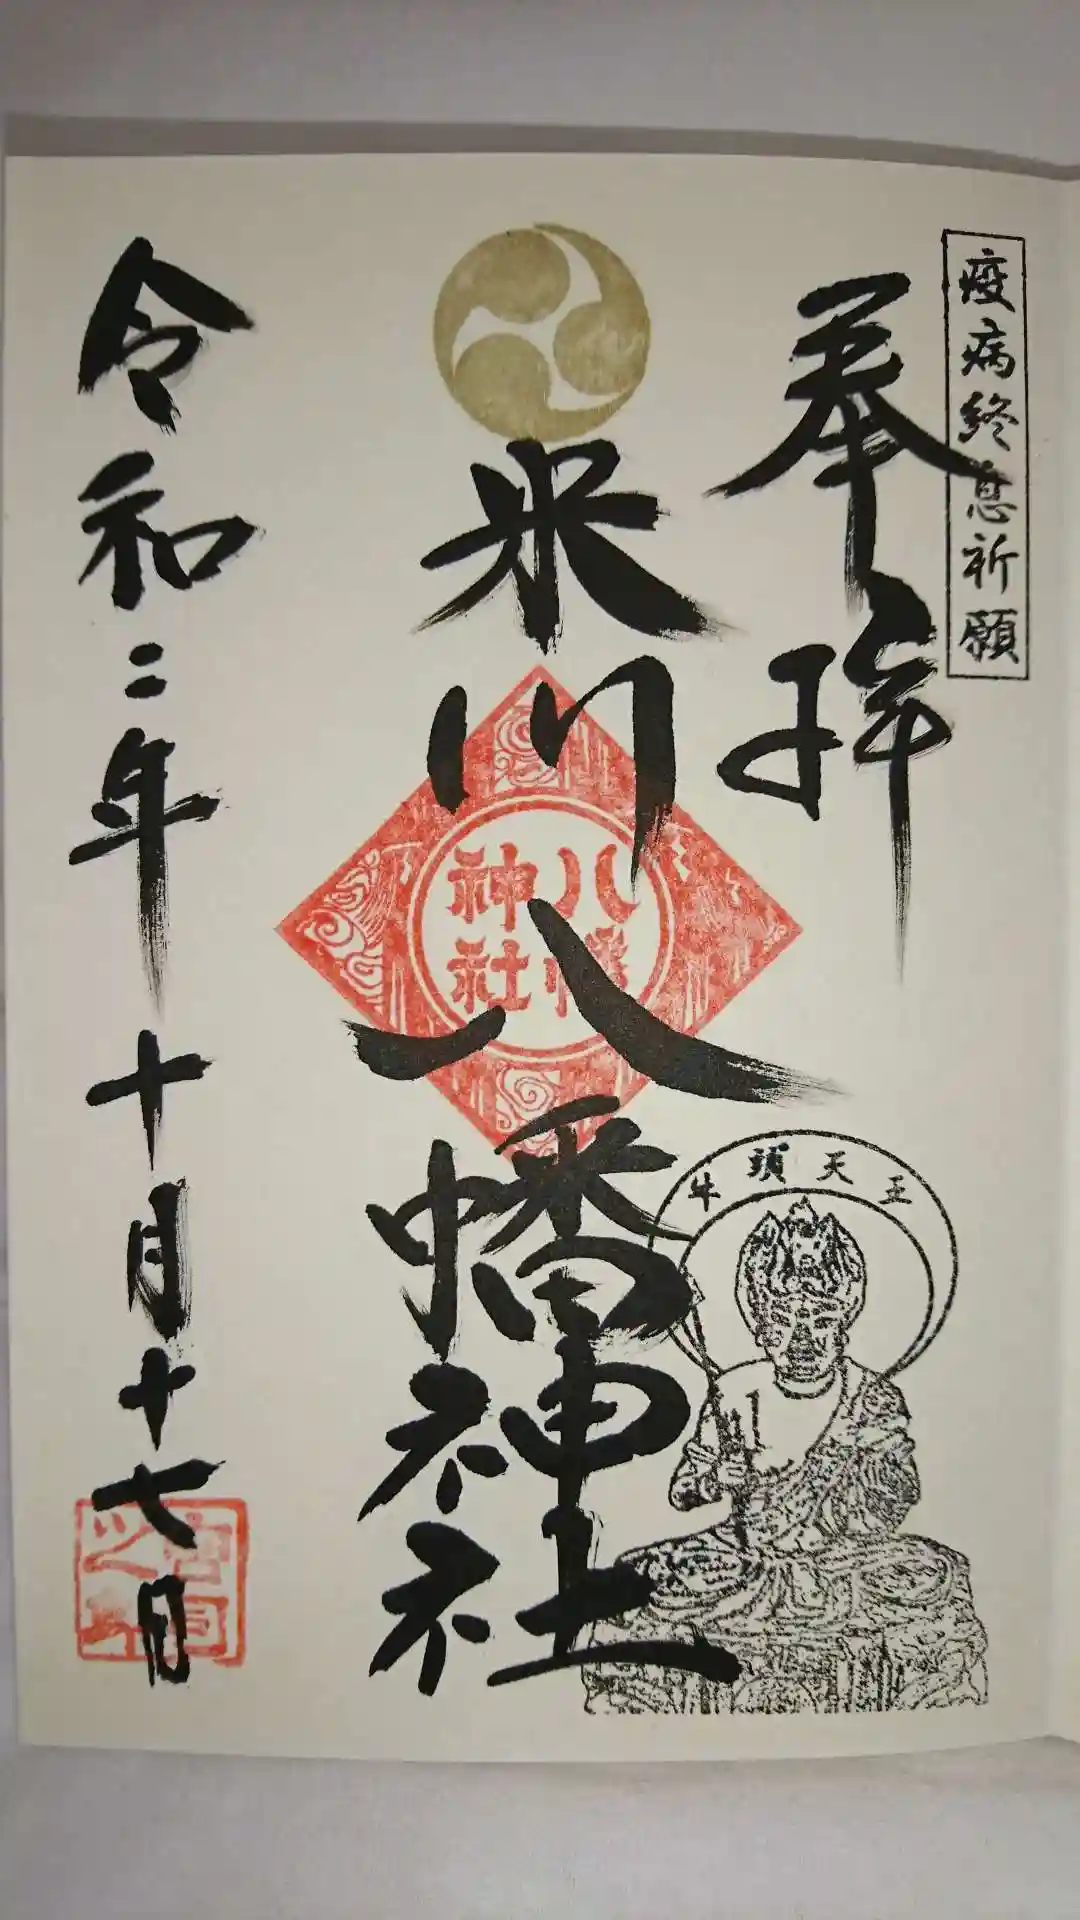 疫病終息祈願
奉拝
米川八幡神社
八幡
神社
牛頭天王
令和二年十月十七日
宮司
之印